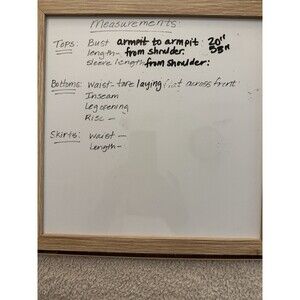 Measurements:
Tops: Bust armpit to armpit 20"
length- from shoulder 38"
sleeve length from shoulder:
Bottoms: Waist- tape laying flat across front
Inseam
Leg opening
Rise -
Skirts: Waist -
Length -